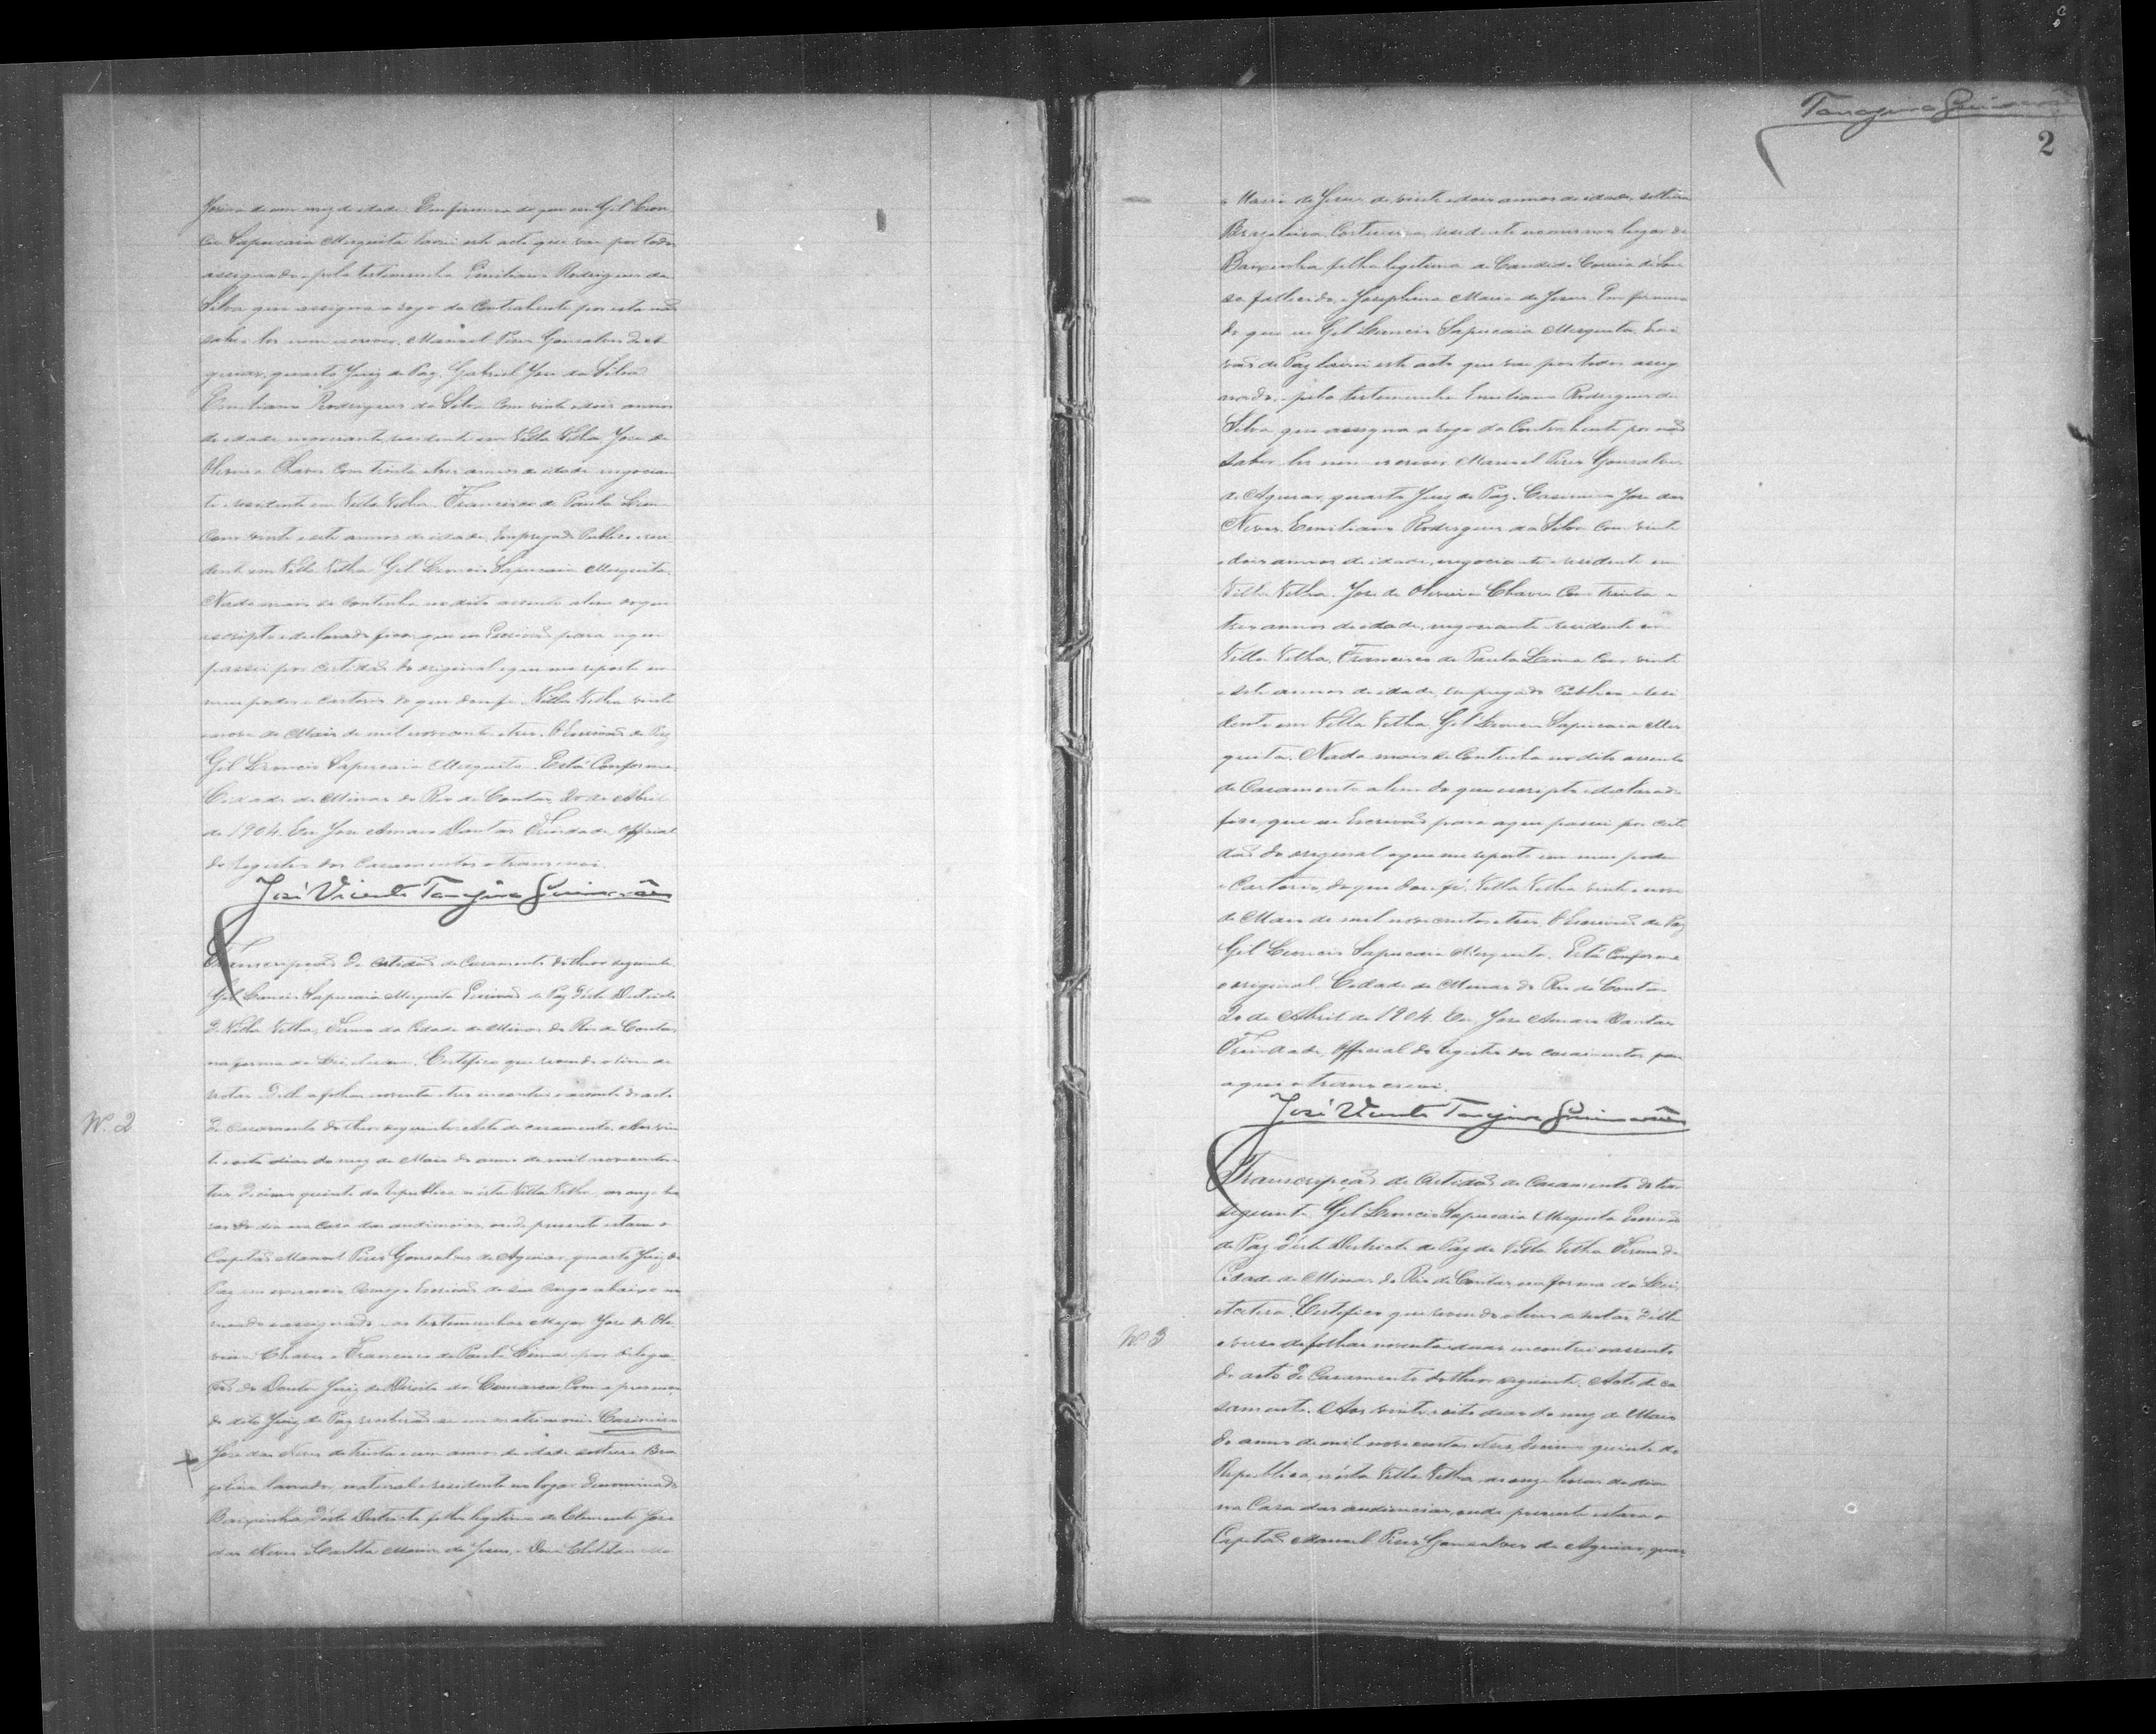 de um mez de idade. Em firmeza do que eu Gil Leon
cio Sapucaia Mesquita lavrei este acto que vae por todos
assignado e pela testemunha Emiliano Rodrigues da
Silva que assigna a rogo da Contrahente por esta não
saber ler nem escrever. Manoel Pires Gonsalves de A
guiar, quarto Juiz de Paz. Gabriel Jose da Silva
Emiliano Rodrigues da Silva com vinte e dois annos
de idade negociante, residente em Villa Velha Jose de
Oliveira Chaves com trinta e tres annos de idade negocian
te e residente em Villa Velha. Francisco de Paula Lima
com vinte e sete annos de idade, Empregado Publico e resi
dente em Villa Velha Gil Leoncio Sapucaia Mesquita.
Nada mais se continha no dito assento alem do que
escripto e declarado fica, que eu Escrivão para aqui
passei por certidão do original a que me reporto em
meu poder e cartorio do que dou fé. Villa Velha vinte
e nove de Maio de mil novecentos e tres. O Escrivão de Paz
Gil Leoncio Sapucaia Mesquita. Está Conforme.
Cidade de Minas do Rio de Contas, 20 de Abril
de 1904. Eu Jose Amaro Dantas Trindade, Official
do registro dos Casamentos o transcrevi.
José Vicente Tanajura Guimarães
Transcripção da certidão de Casamento do theor seguinte.
Gil Leoncio Sapucaia Mesquita Escrivão de Paz d'este Districto
de Villa Velha, Termo da Cidade de Minas do Rio de Contas
na forma da Lei, Certifico que revendo o livro de
notas d'elle a folhas noventa e tres encontrei o assento do acto
de Casamento do theor seguinte: Acto de casamento. Aos vin
te e oito dias do mez de Maio do anno de mil novecentos e
tres, decimo quinto da Republica n'esta Villa Velha, as onze ho
ras do dia na casa das audiencias, onde presente estava o
Capitão Manoel Pires Gonsalves de Aguiar, quarto Juiz de
Paz em exercicio comigo Escrivão de seu cargo abaixo no
meado e assignado e as testemunhas Major Jose de Oli
veira Chaves e Francisco de Paula Lima, por delega
ção do Doutor Juiz de Direito da Comarca, Com a presença
do dito Juiz de Paz receberão se em matrimonio Casimiro
Jose das Neves de trinta e um annos de idade solteiro Bra
zileiro lavrador, natural e residente no logar denominado
Baixinha d'este Districto filho legitimo de Clemente Jose
das Neves e Maria de Jesus, e Dona Clotildes Ma
Nº 2
Tanajura Guimarães
2
ria Maria de Jesus de vinte e dois annos de idade, solteira
Brazileira, Costureira, residente no mesmo lugar da
Baixinha filha legitima de Candido Correia de Sou
sa fallecido, e Josephina Maria de Jesus. Em firmeza
do que eu Gil Leoncio Sapucaia Mesquita, Escri
vão de Paz lavrei este acto que vae por todos assig
nado, e pela testemunha Emiliano Rodrigues da
Silva, que assigna a rogo da Contrahente por não
saber ler nem escrever Manoel Pires Gonsalves
de Aguiar, quarto Juiz de Paz. Casimiro Jose das
Neves. Emiliano Rodrigues da Silva com vinte
e dois annos de idade, negociante e residente em
Villa Velha. Jose de Oliveira Chaves Com trinta e
tres annos de idade, negociante e residente em
Villa Velha, Francisco de Paula Lima Com vinte
e sete annos de idade, empregado Publico e resi
dente em Villa Velha, Gil Leoncio Sapucaia Mes
quita. Nada mais se Continha no dito assento
de Casamento alem do que escripto e declarado
fica, que eu Escrivão para aqui passei por certi
dão do original a que me reporto em meu poder
e Cartorio, do que dou fé. Villa Velha vinte e nove
de Maio de mil novecentos e tres. O Escrivão de Paz
Gil Leoncio Sapucaia Mesquita. Está Conforme
o original. Cidade de Minas do Rio de Contas
20 de Abril de 1904. Eu, Jose Amaro Dantas
Trindade, Official do registro dos casamentos para
aqui o transcrevi.
José Vicente Tanajura Guimarães
Transcripção da Certidão de Casamento do teor
seguinte. Gil Leoncio Sapucaia Mesquita Escrivão
de Paz d'este Districto de Paz da Villa Velha Termo da
Cidade de Minas do Rio de Contas na forma da Lei,
etcetera. Certifico que revendo o livro de notas d'elle
o verso de folhas noventa e duas encontrei o assento
do acto de Casamento do theor seguinte. Acto de ca
samento. Aos vinte e oito dias do mez de Maio
do anno de mil novecentos e tres decimo quinto da
Republica, n'esta Villa Velha, as onze horas do dia
na Casa das audiencias, onde presente estava o
Capitão Manoel Pires Gonsalves de Aguiar, quar
Nº 3